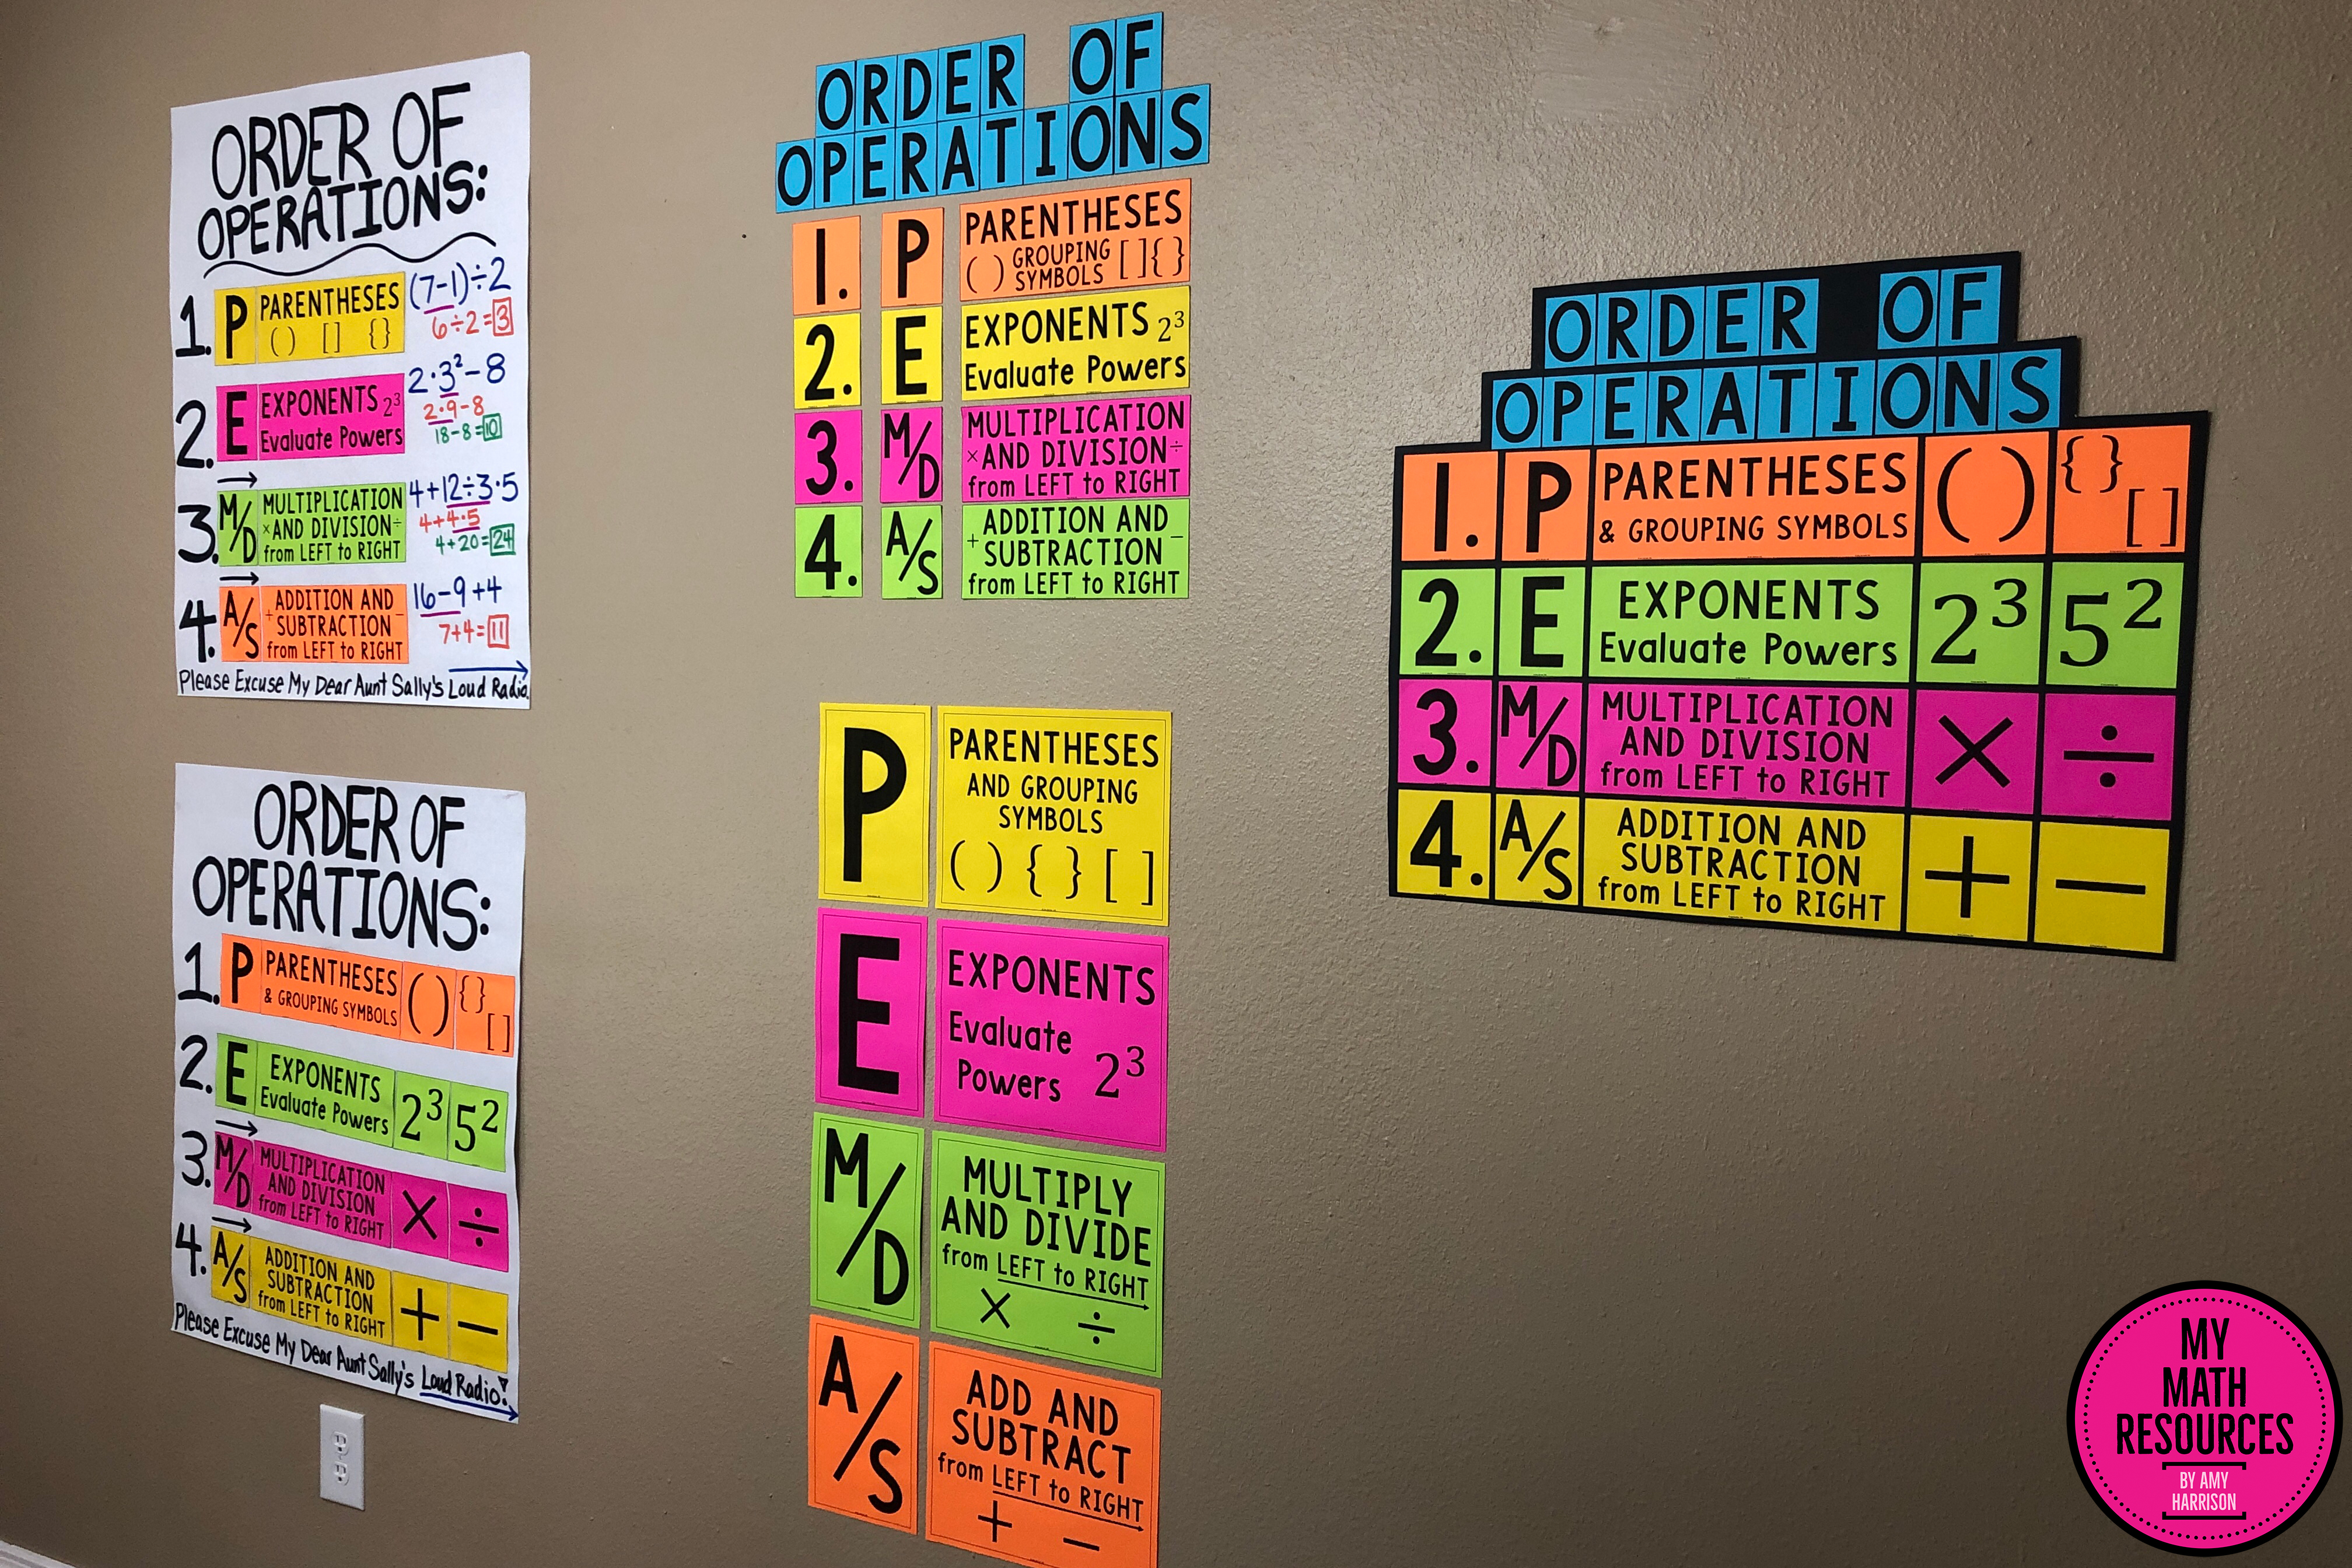 ORDER OF
OPERATIONS:
1. P PARENTHESES
( ) [ ] { }
(7-1)÷2
6÷2=3
2. E EXPONENTS 2³
Evaluate Powers
2·3²-8
2·9-8
18-8=10
3. M/D MULTIPLICATION
× AND DIVISION ÷
from LEFT to RIGHT
4+12÷3·5
4+4·5
4+20=24
4. A/S ADDITION AND
+ SUBTRACTION −
from LEFT to RIGHT
16-9+4
7+4=11
Please Excuse My Dear Aunt Sally's Loud Radio.
ORDER OF
OPERATIONS:
1. P PARENTHESES
& GROUPING SYMBOLS
( ) { } [ ]
2. E EXPONENTS
Evaluate Powers
2³ 5²
3. M/D MULTIPLICATION
AND DIVISION
from LEFT to RIGHT
× ÷
4. A/S ADDITION AND
SUBTRACTION
from LEFT to RIGHT
+ −
Please Excuse My Dear Aunt Sally's Loud Radio!
ORDER OF
OPERATIONS
1. P PARENTHESES
( ) GROUPING SYMBOLS [ ] { }
2. E EXPONENTS 2³
Evaluate Powers
3. M/D MULTIPLICATION
× AND DIVISION ÷
from LEFT to RIGHT
4. A/S ADDITION AND
+ SUBTRACTION −
from LEFT to RIGHT
P PARENTHESES
AND GROUPING
SYMBOLS
( ) { } [ ]
E EXPONENTS
Evaluate
Powers 2³
M/D MULTIPLY
AND DIVIDE
from LEFT to RIGHT
× ÷
A/S ADD AND
SUBTRACT
from LEFT to RIGHT
+ −
ORDER OF
OPERATIONS
1. P PARENTHESES
& GROUPING SYMBOLS
( ) { } [ ]
2. E EXPONENTS
Evaluate Powers
2³ 5²
3. M/D MULTIPLICATION
AND DIVISION
from LEFT to RIGHT
× ÷
4. A/S ADDITION AND
SUBTRACTION
from LEFT to RIGHT
+ −
MY
MATH
RESOURCES
BY AMY
HARRISON